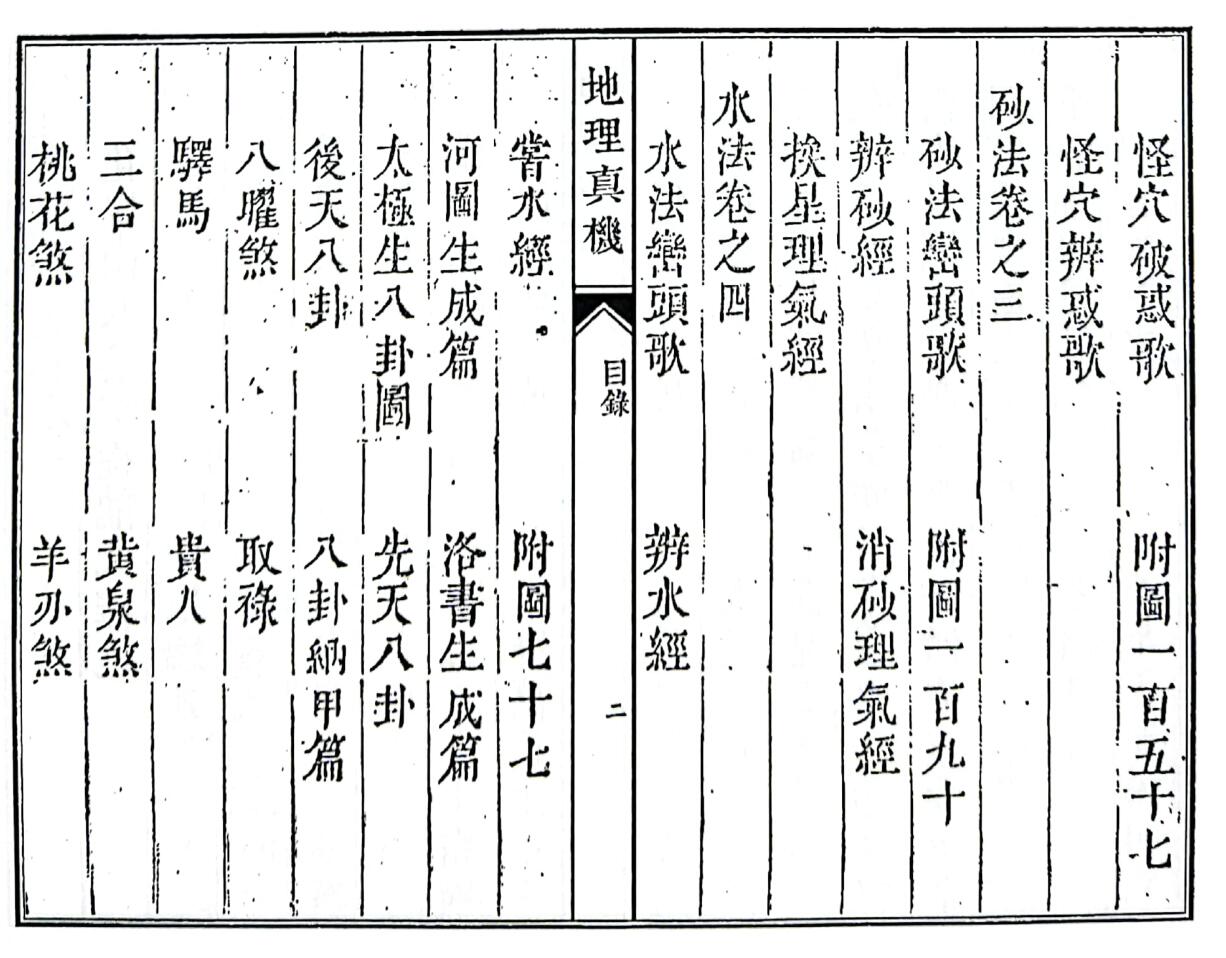 怪穴破惑歌 附圖一百五十七
怪穴辨惑歌
砂法卷之三
砂法巒頭歌 附圖一百九十
辨砂經 消砂理氣經
挨星理氣經
水法卷之四
水法巒頭歌 辨水經
地理真機 目錄 二
嘗水經 附圖七十七
河圖生成篇 洛書生成篇
太極生八卦圖 先天八卦
後天八卦 八卦納甲篇
八曜煞 取祿
驛馬 貴人
三合 黃泉煞
桃花煞 羊刃煞